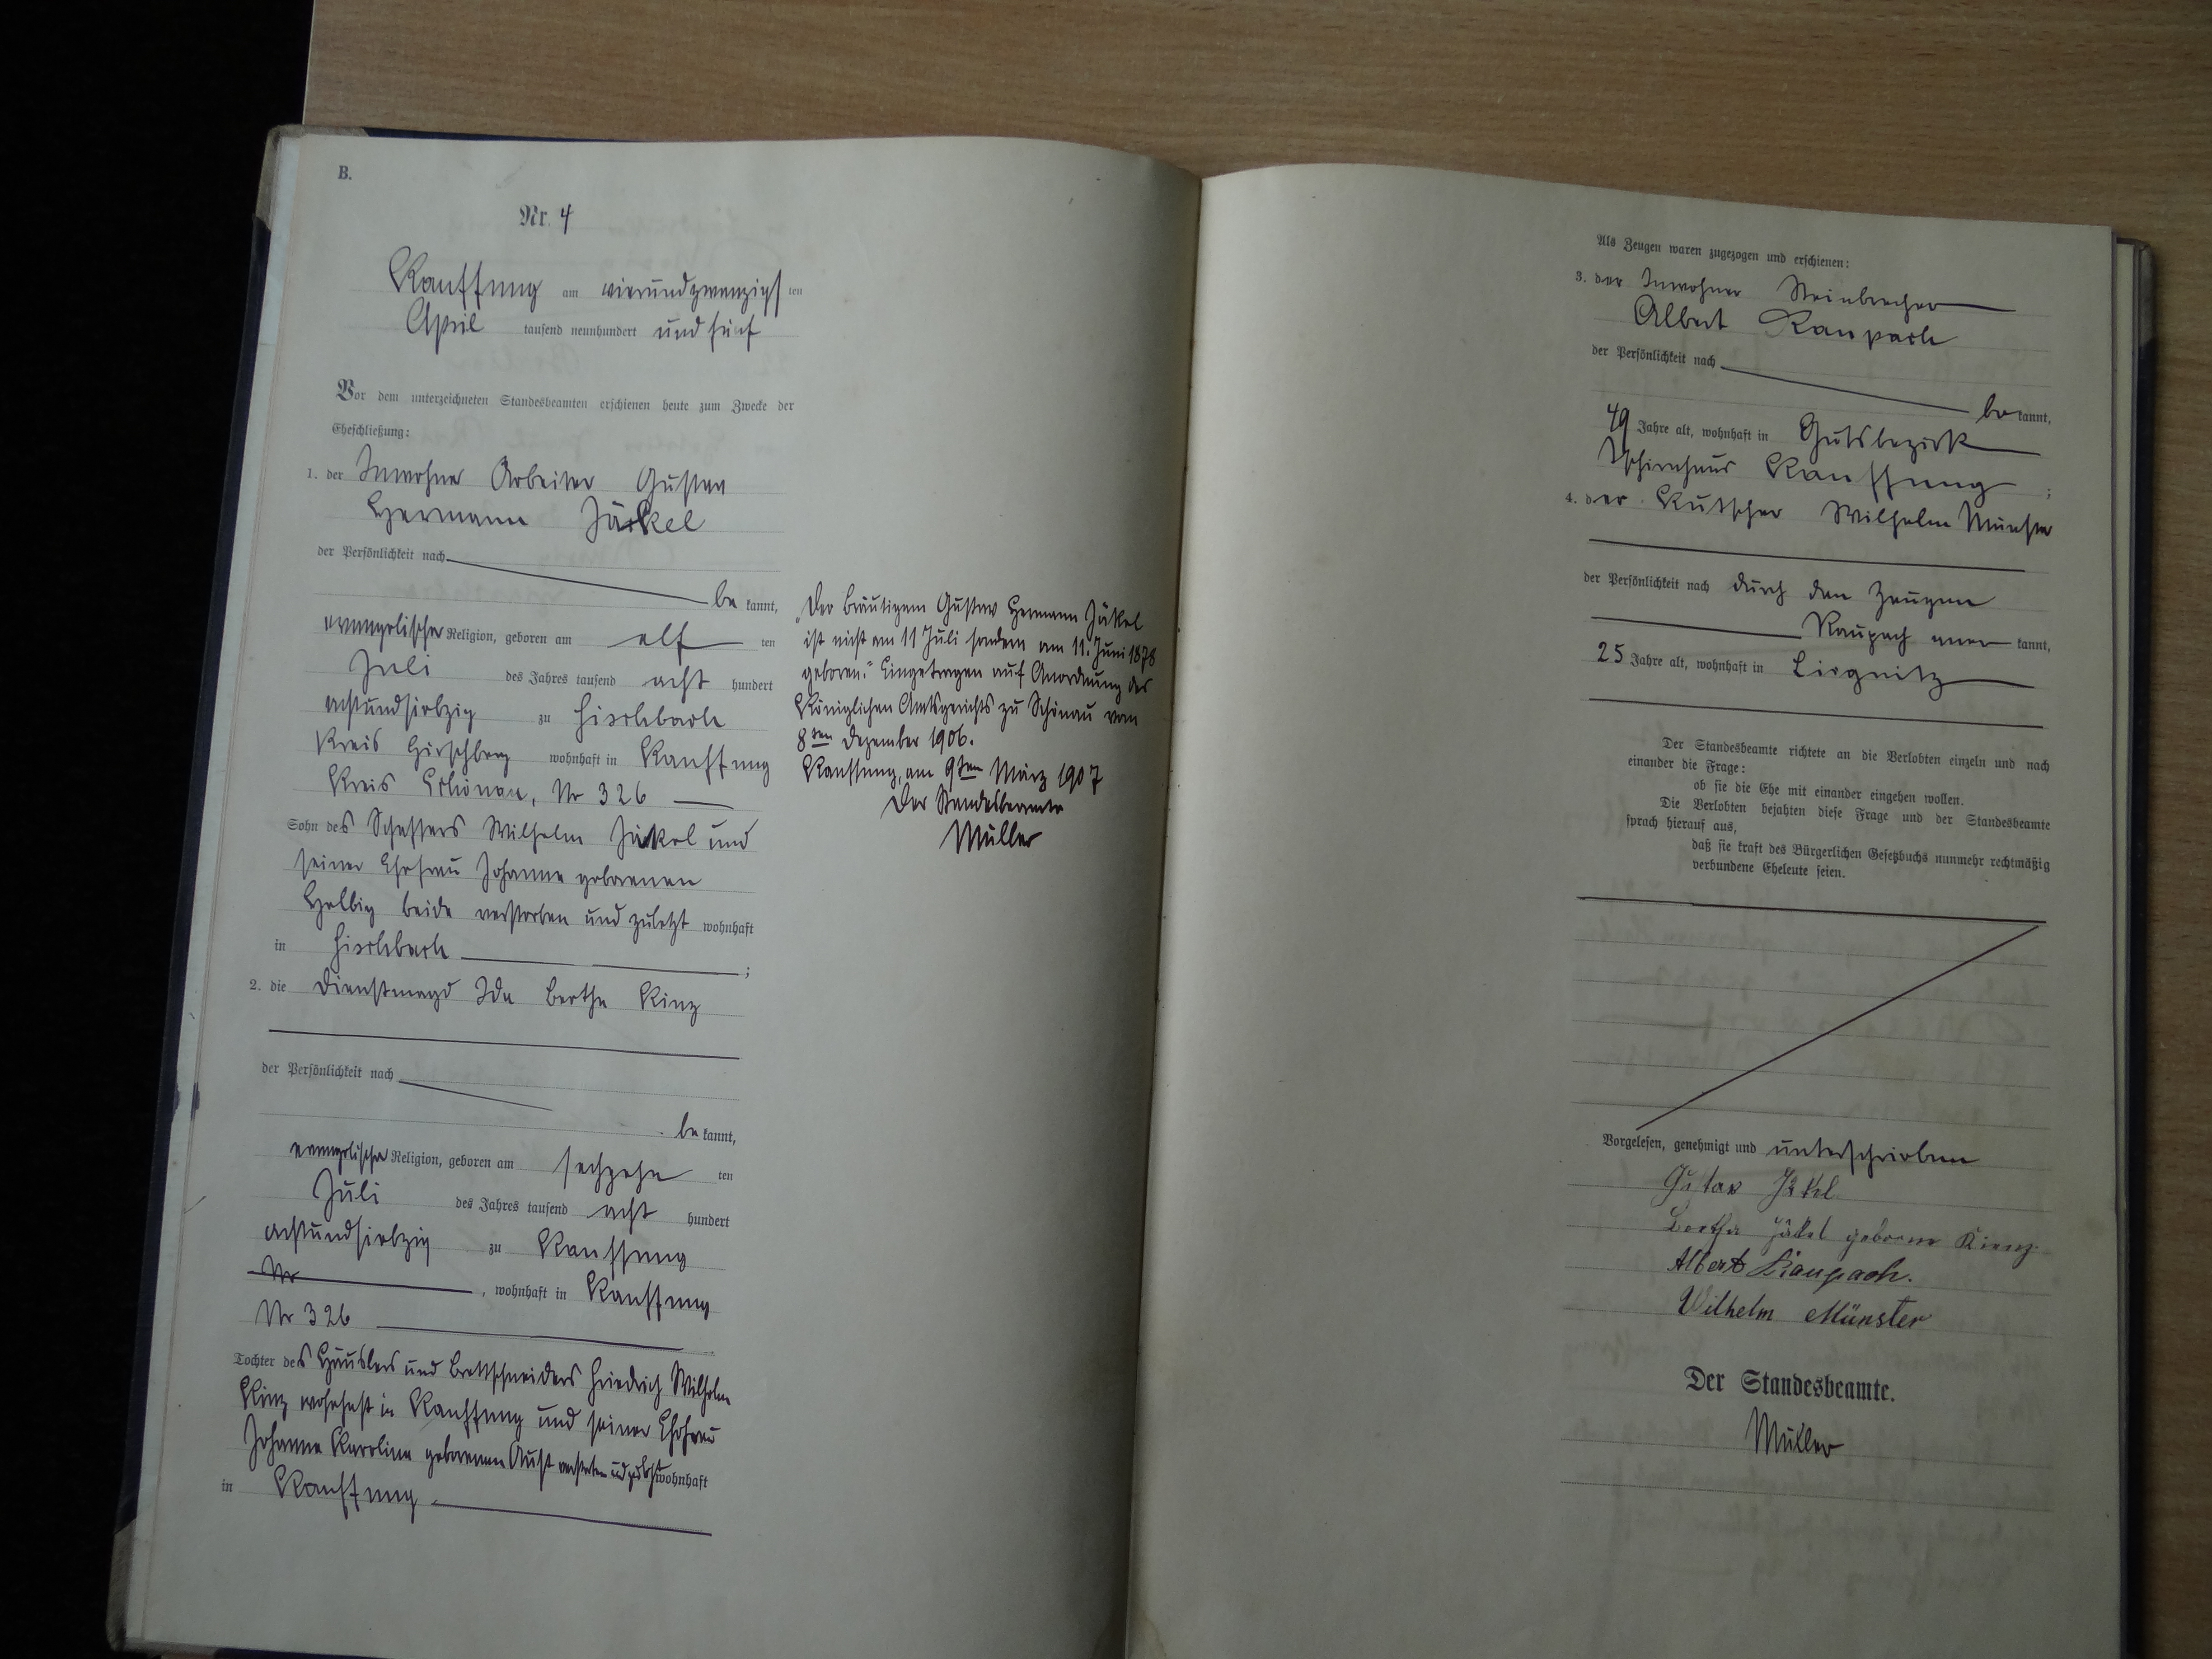 B.
Nr. 4
Kauffung am vierundzwanzigsten
April tausend neunhundert und fünf
Vor dem unterzeichneten Standesbeamten erschienen heute zum Zwecke der
Eheschließung:
1. der Inwohner Arbeiter Gustav
Hermann Jäckel
der Persönlichkeit nach
be kannt,
evangelischer Religion, geboren am elf ten
Juli des Jahres tausend acht hundert
achtundsiebzig zu Fischbach
Kreis Hirschberg wohnhaft in Kauffung
Kreis Schönau, Nr 326
Sohn des Schaffers Wilhelm Jäckel und
seiner Ehefrau Johanne geborenen
Helbig beide verstorben und zuletzt wohnhaft
in Fischbach ;
2. die Dienstmagd Ida Bertha Kinz
der Persönlichkeit nach
be kannt,
evangelischer Religion, geboren am sechzehn ten
Juli des Jahres tausend acht hundert
achtundsiebzig zu Kauffung
Nr , wohnhaft in Kauffung
Nr 326
Tochter des Häuslers und Brettschneiders Friedrich Wilhelm
Kinz wohnhaft in Kauffung und seiner Ehefrau
Johanne Karoline geborenen Aust verstorben und zuletzt wohnhaft
in Kauffung
„Der Bräutigam Gustav Hermann Jäkel
ist nicht am 11 Juli sondern am 11. Juni 1878
geboren." Eingetragen auf Anordnung des
Königlichen Amtsgerichts zu Schönau vom
8ten Dezember 1906.
Kauffung, am 9ten März 1907
Der Standesbeamte
Müller
Als Zeugen waren zugezogen und erschienen:
3. der Inwohner Steinbrecher
Albert Raupach
der Persönlichkeit nach
be kannt,
49 Jahre alt, wohnhaft in Gutsbezirk
Tschirnhaus Kauffung ;
4. der Kutscher Wilhelm Münster
der Persönlichkeit nach durch den Zeugen
Raupach aner kannt,
25 Jahre alt, wohnhaft in Liegnitz
Der Standesbeamte richtete an die Verlobten einzeln und nach
einander die Frage:
ob sie die Ehe mit einander eingehen wollen.
Die Verlobten bejahten diese Frage und der Standesbeamte
sprach hierauf aus,
daß sie kraft des Bürgerlichen Gesetzbuchs nunmehr rechtmäßig
verbundene Eheleute seien.
Vorgelesen, genehmigt und unterschrieben
Gustav Jäkel
Bertha Jäkel geborne Kienz
Albert Raupach.
Wilhelm Münster
Der Standesbeamte.
Müller